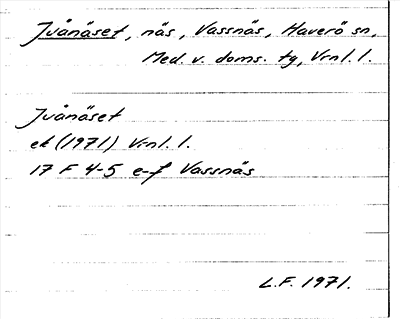 Juånäset, näs, Vassnäs, Haverö sn,
Med. v. doms. tg, Vrnl. l.
Juånäset
ek (1971) Vrnl. l.
17 F 4-5 e-f Vassnäs
L.F. 1971.